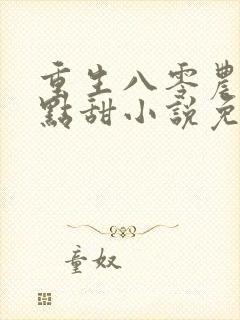 重生八零農
點甜小說免
童奴